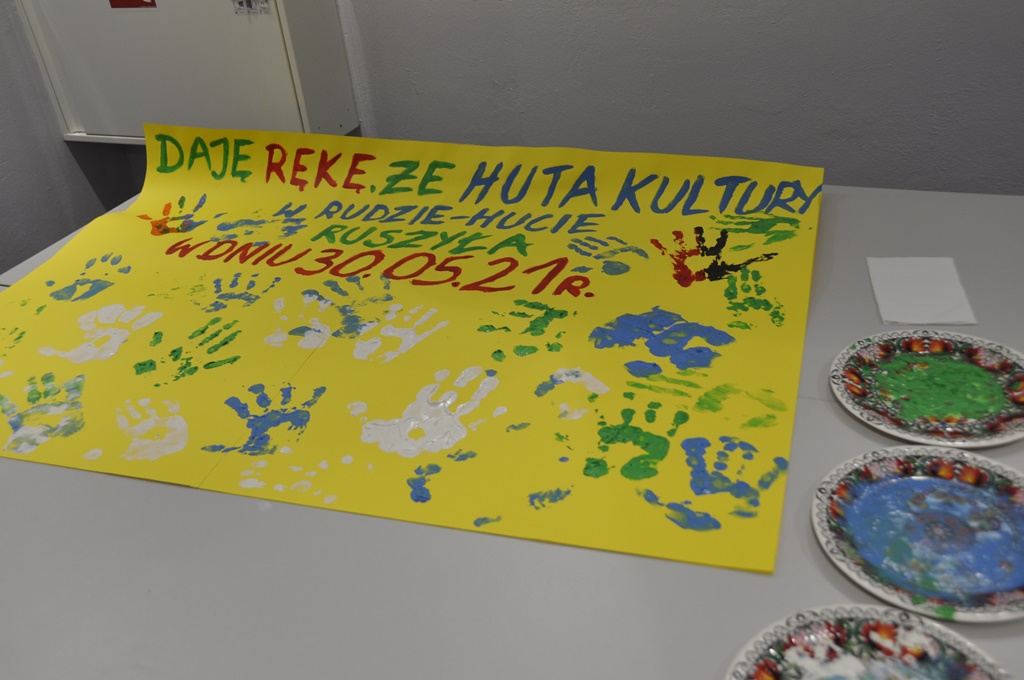 DAJĘ RĘKĘ, ŻE HUTA KULTURY
W RUDZIE-HUCIE
RUSZYŁA
W DNIU 30.05.21 R.